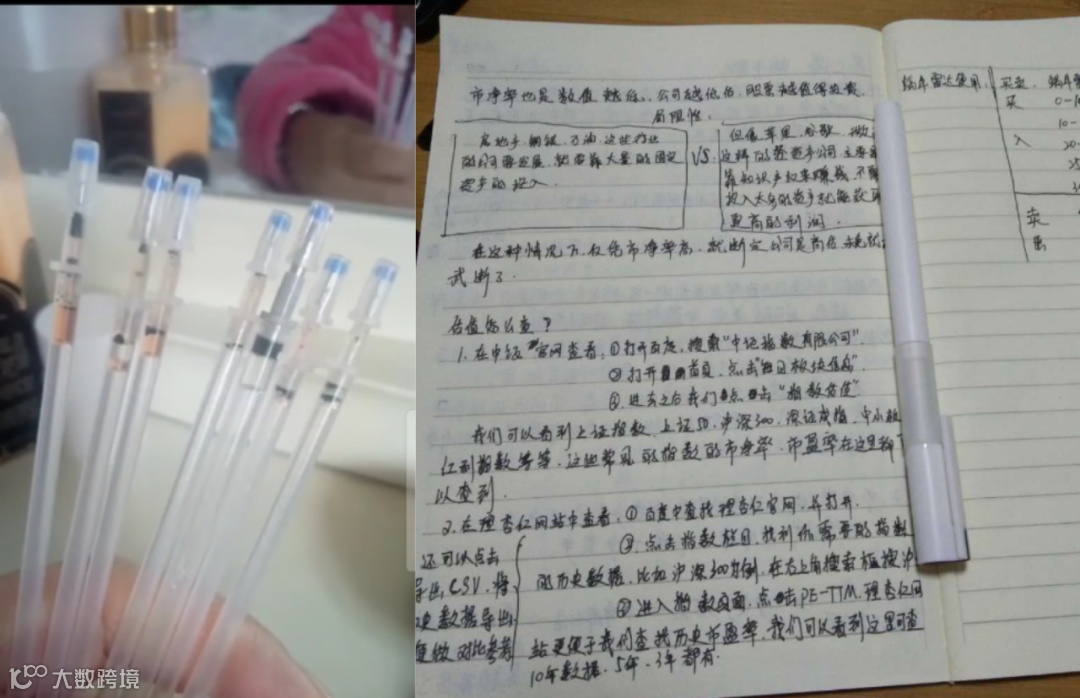 市净率也是数值越低，公司越低估，股票越值得投资．
局限性．
房地产、钢铁、石油、这些行业
的公司要发展，就需靠大量的固定
资产的投入．
VS.
但像苹果，谷歌，微
这样的轻资产公司主要
靠知识产权来赚钱，不
投入太多的资产就能获
更高的利润．
在这种情况下，仅凭市净率高，就断定公司是高估
武断了．
估值怎么查？
1. 在中证官网查看：①打开百度，搜索"中证指数有限公司"
②打开首页，点击"每日板块信息"
③．进去之后我们点击"指数估值"
我们可以看到上证指数，上证50，沪深300，深证成指，中小板
红利指数等等，这些常见的指数的市净率．市盈率在这里都
以查到．
2. 在理杏仁网站中查看，①百度中查找理杏仁官网．并打开．
②．点击指数栏目，找到你需要的指数
的历史数据，比如沪深300为例，在右上角搜索框搜沪
②进入指数页面，点击PE-TTM，理杏仁网
站更便于我们查找历史市盈率，我们可以看到这里可查
10年数据．5年．3年都有．
还可以点击
导出CSV，将
史数据导出
做对比参考
蜗牛雷达使用，
买卖
买
入
卖
出
0-10
10-
20-
大数跨境